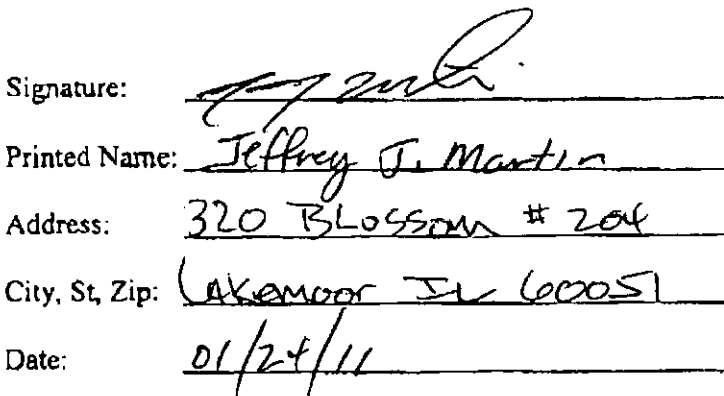 Signature:
Printed Name: Jeffrey J. Martin
Address: 320 Blossom # 204
City, St, Zip: Lakemoor IL 60051
Date: 01/24/11